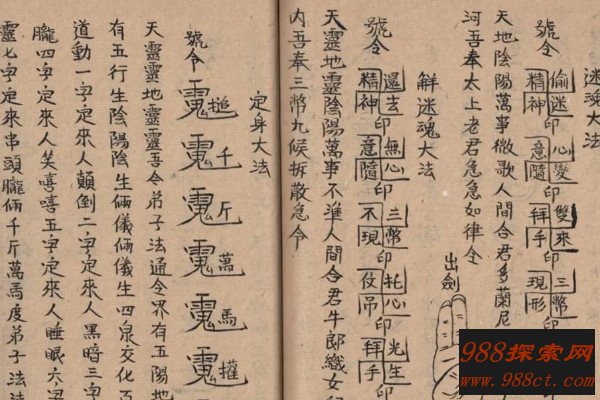 迷魂大法
號令 偷迷精神印 心變意隨印 雙來拜手印 三幣現形印
天地陰陽萬事微歌人間合君多蘭尼
河吾奉太上老君急急如律令
解迷魂大法
出劍
號令 還去精神印 無心意隨印 三幣不現印 托心仗吊印 光生拜手印
天靈地靈陰陽萬事不準人間合君牛郎織女
內吾奉三幣九候拆散急令
定身大法
號令 槌 千 斤 萬 馬
天靈靈地靈靈吾令弟子法通令界有五陽地
有五行生陰陽陰生俩儀俩儀生四泉交化百
道動一字定來人顛倒二字定來人黑暗三字
朧四字定來人笑嘻嘻五字定來人睡眠六字
靈七字定來串頭朧俩千斤萬馬度弟子法
988探索网
www.988ct.com